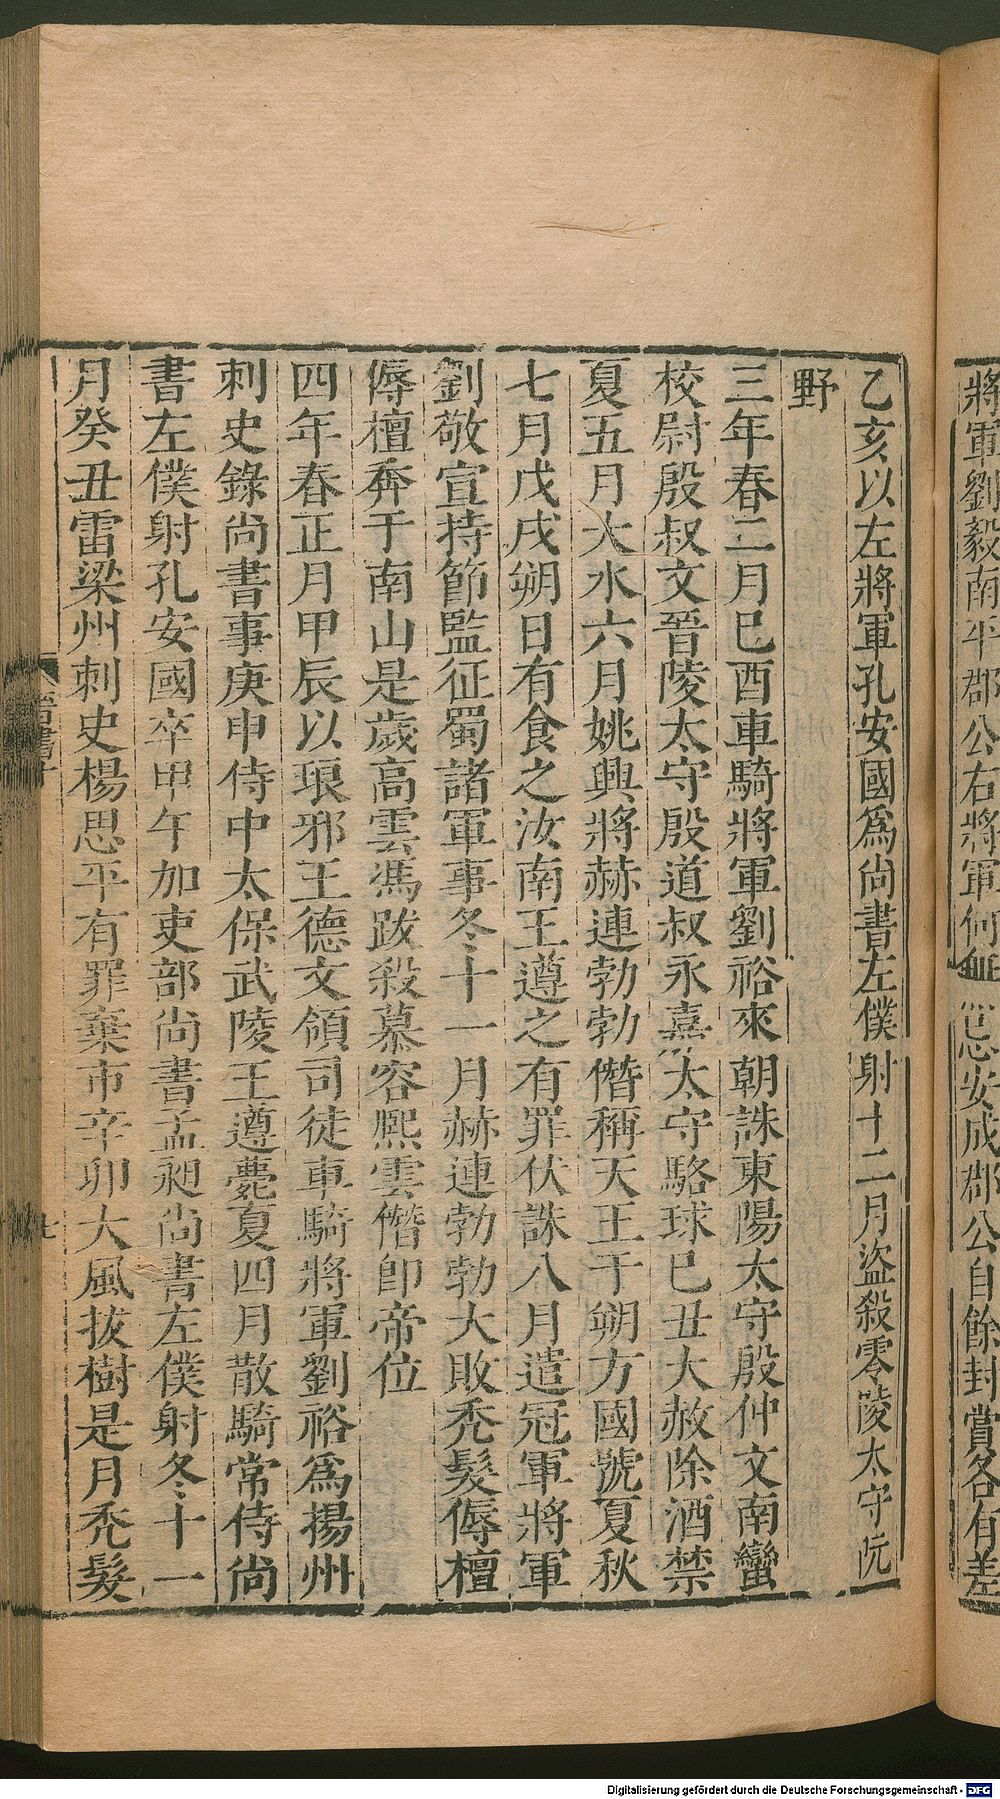 將軍劉毅南平郡公右將軍何無忌安成郡公自餘封賞各有差
乙亥以左將軍孔安國爲尙書左僕射十二月盜殺零陵太守阮
野
三年春二月巳酉車騎將軍劉裕來朝誅東陽太守殷仲文南蠻
校尉殷叔文晉陵太守殷道叔永嘉太守駱球巳丑大赦除酒禁
夏五月大水六月姚興將赫連勃勃僭稱天王于朔方國號夏秋
七月戊戌朔日有食之汝南王遵之有罪伏誅八月遣冠軍將軍
劉敬宣持節監征蜀諸軍事冬十一月赫連勃勃大敗禿髮傉檀
傉檀奔于南山是歲高雲馮跋殺慕容熙雲僭卽帝位
四年春正月甲辰以琅邪王德文領司徒車騎將軍劉裕爲揚州
刺史錄尙書事庚申侍中太保武陵王遵薨夏四月散騎常侍尙
書左僕射孔安國卒甲午加吏部尙書孟昶尙書左僕射冬十一
月癸丑雷梁州刺史楊思平有罪棄市辛卯大風拔樹是月禿髮
晉書十
七
Digitalisierung gefördert durch die Deutsche Forschungsgemeinschaft - DFG